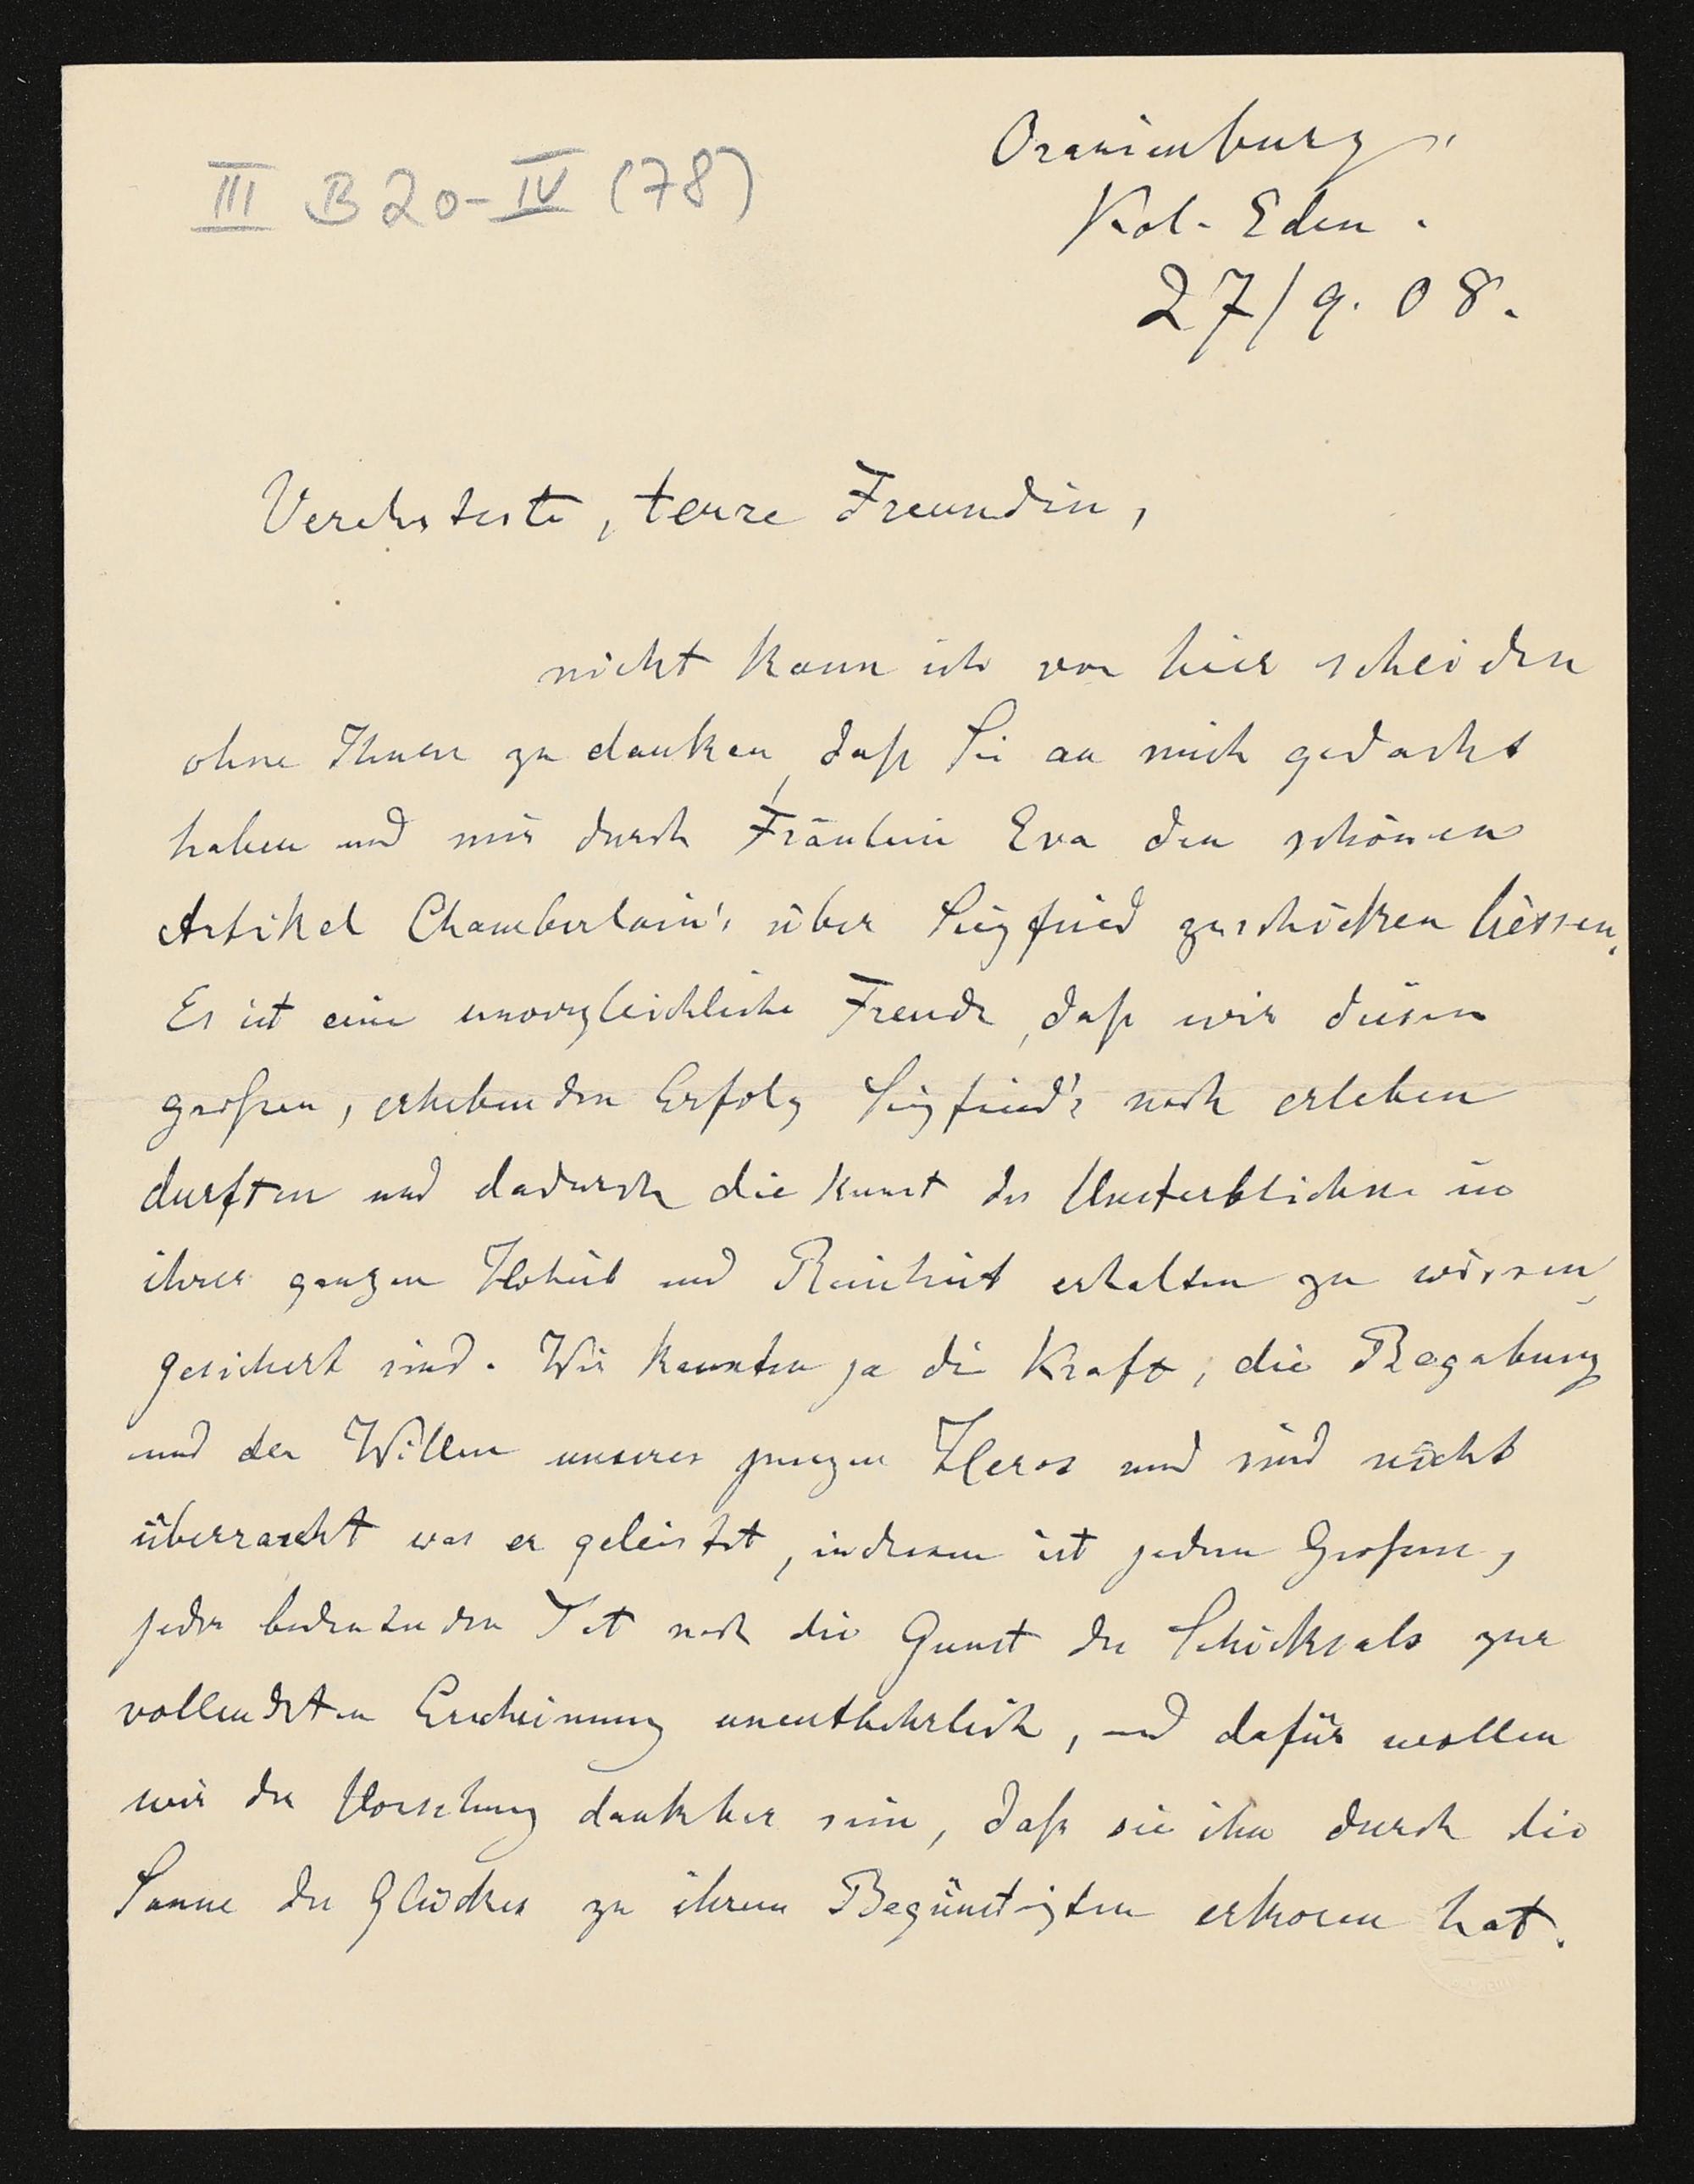 III B 20-IV (78)
Oranienburg,
Kol. Eden.
27/9. 08.
Verehrteste, teure Freundin,
nicht kann ich von hier scheiden
ohne Ihnen zu danken, daß Sie an mich gedacht
haben und mir durch Fräulein Eva den schönen
Artikel Chamberlain's über Siegfried zuschicken liessen.
Es ist eine unvergleichliche Freude, daß wir diesen
großen, erhebenden Erfolg Siegfried's noch erleben
durften und dadurch die Kunst des Unsterblichen in
ihrer ganzen Hoheit und Reinheit erhalten zu wissen,
gesichert sind. Wir kannten ja die Kraft, die Begabung
und den Willen unseres jungen Heros und sind nicht
überrascht was er geleistet, indessen ist jedem Großen,
jeder bedeutenden Tat noch die Gunst des Schicksals zur
vollendeten Erscheinung unentbehrlich, und dafür wollen
wir der Vorsehung dankbar sein, daß sie ihn durch die
Sonne des Glückes zu ihrem Begünstigten erkoren hat.